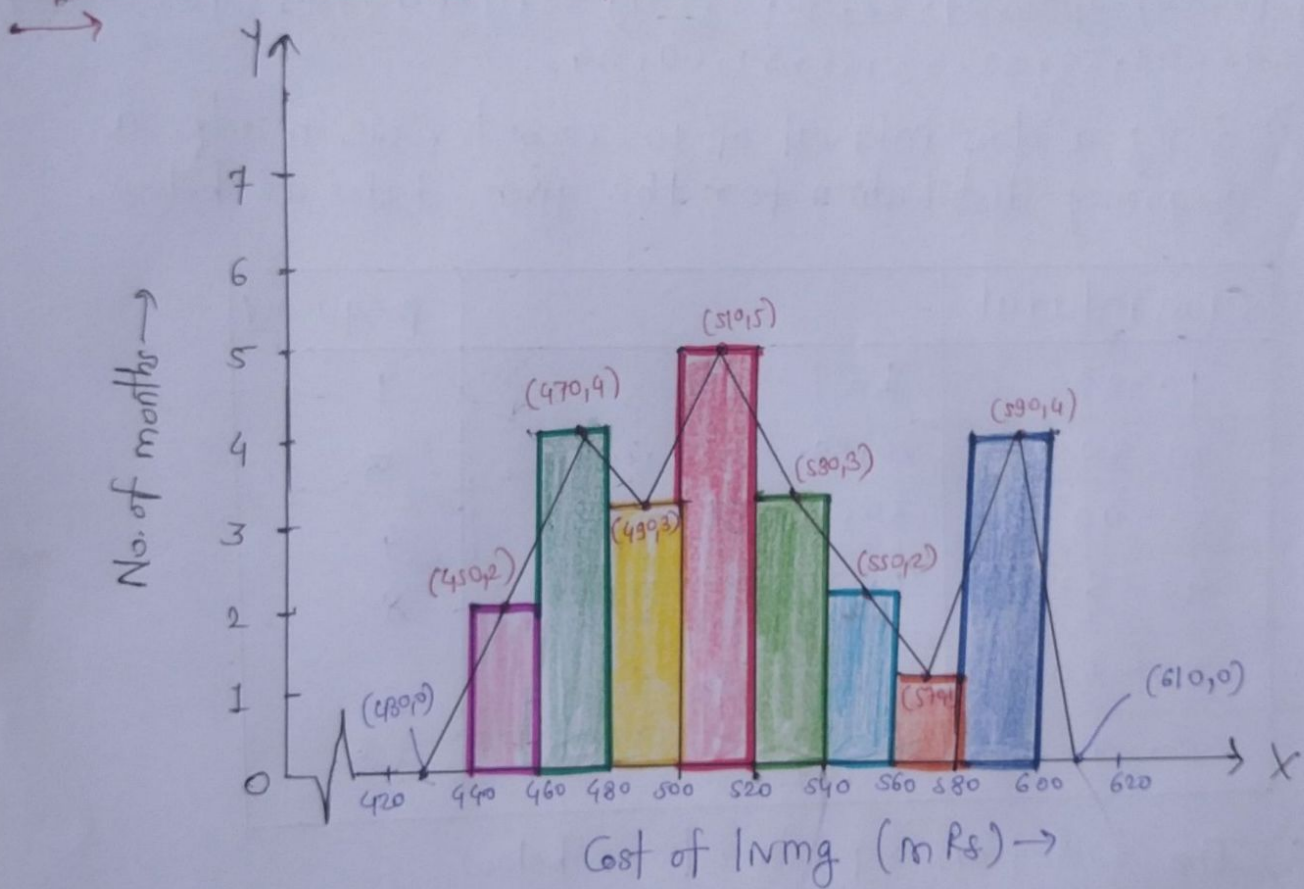 Y
7
6
5
4
3
2
1
0
No. of months →
(510,5)
(470,4)
(590,4)
(530,3)
(490,3)
(550,2)
(450,2)
(430,0)
(610,0)
420 440 460 480 500 520 540 560 580 600 620
X
Cost of living (in Rs) →